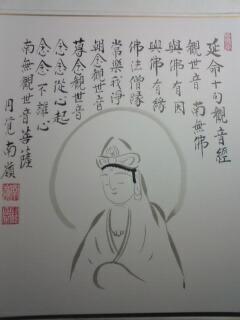 延命十句觀音經
觀世音 南無佛
與佛有因
與佛有緣
佛法僧緣
常樂我淨
朝念觀世音
暮念觀世音
念念從心起
念念不離心
南無觀世音菩薩
円覚南嶺